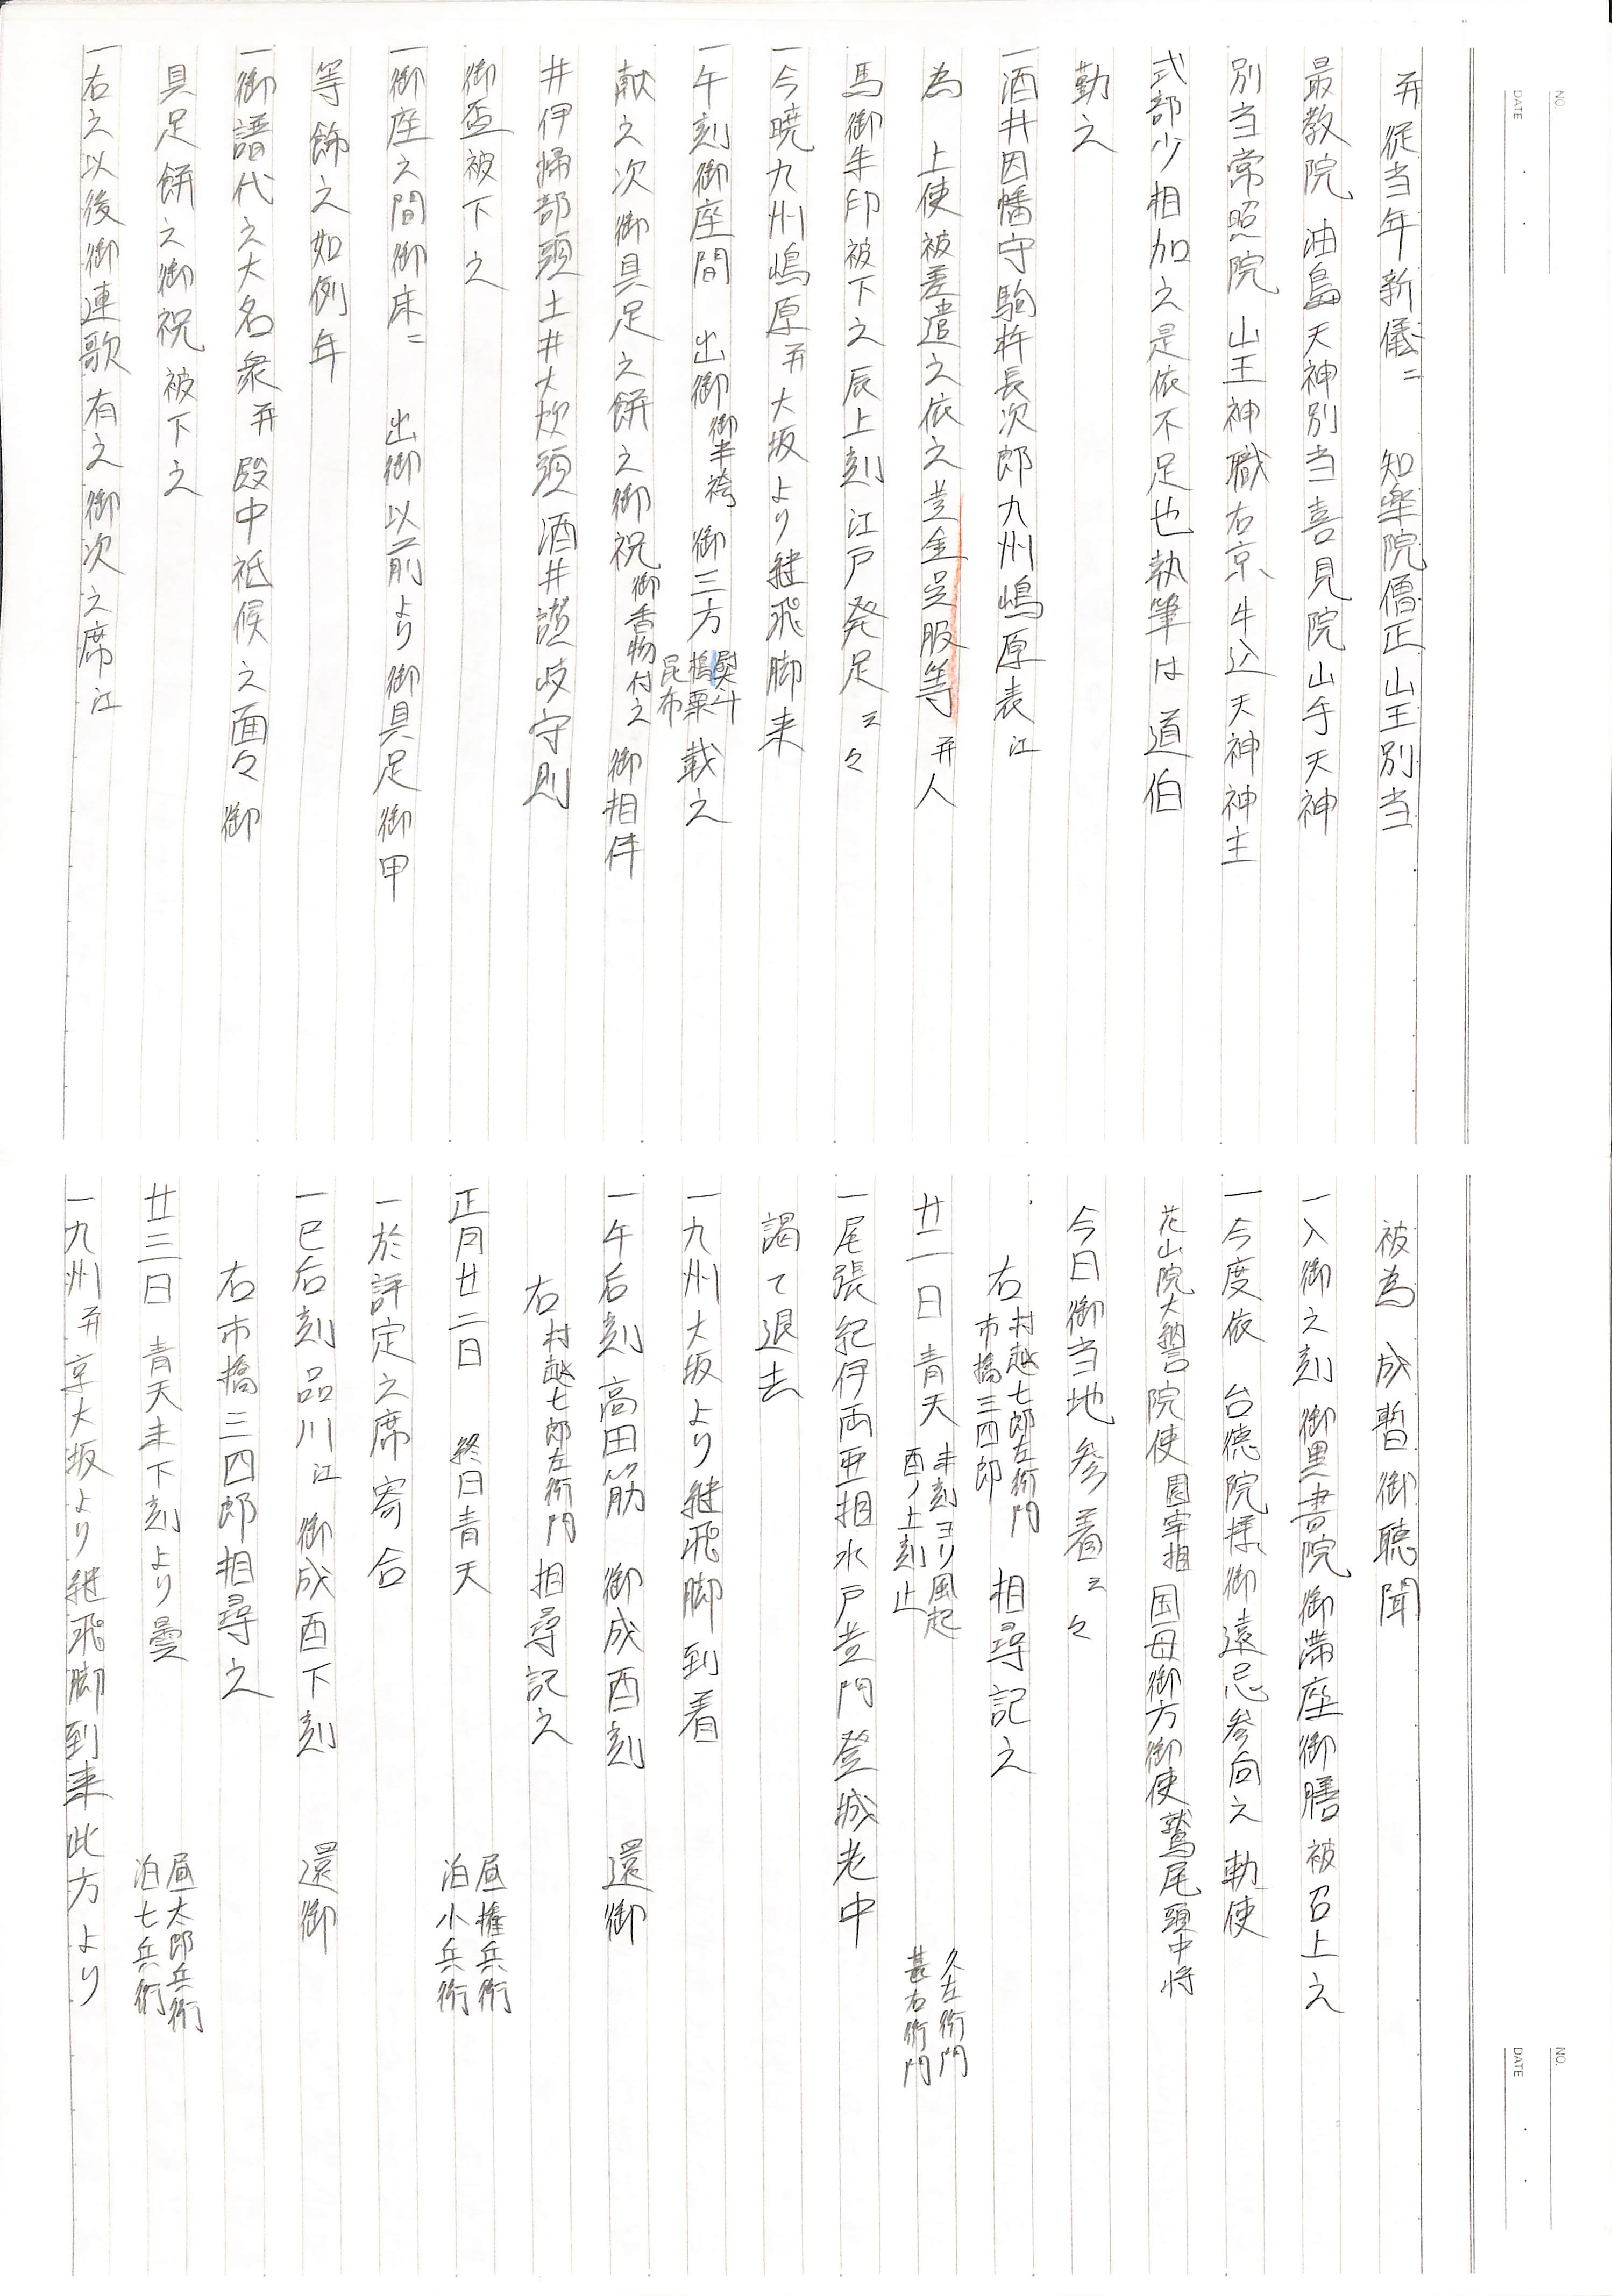 NO.
DATE
并従当年新儀ニ　知楽院僧正山王別当
最教院油島天神別当喜見院山手天神
別当常照院山王神職右京牛込天神神主
式部少相加之是依不足也執筆は道伯
勤之
一酒井因幡守駒井長次郎九州嶋原表江
為　上使被差遣之依之黄金呉服等并人
馬御朱印被下之辰上刻江戸発足云々
一今暁九州嶋原并大坂より継飛脚来
一午刻御座間　出御御半袴御三方熨斗搗栗昆布載之
献之次御具足之餅之御祝御香物付之御相伴
井伊掃部頭土井大炊頭酒井讃岐守則
御盃被下之
一御座之間御床ニ　出御以前より御具足御甲
等餝之如例年
一御譜代之大名衆并殿中祗候之面々御
具足餅之御祝被下之
一右之以後御連歌有之御次之席江
NO.
DATE
被為　成暫御聴聞
一入御之刻御黒書院御滞座御膳被召上之
一今度依　台徳院様御遠忌参向之勅使
花山院大納言院使園宰相国母御方御使鷲尾頭中将
今日御当地参着云々
右村越七郎左衛門市橋三四郎相尋記之
廿一日　青天未刻ヨリ風起酉ノ上刻止　久左衛門甚右衛門
一尾張紀伊両亜相水戸黄門登城老中
謁て退去
一九州大坂より継飛脚到着
一午后刻高田筋　御成酉刻　還御
右村越七郎左衛門相尋記之
正月廿二日　終日青天　昼権兵衛泊小兵衛
一於評定之席寄合
一巳后刻品川江　御成酉下刻　還御
右市橋三四郎相尋之
廿三日　青天未下刻より曇　昼太郎兵衛泊七兵衛
一九州并京大坂より継飛脚到来此方より